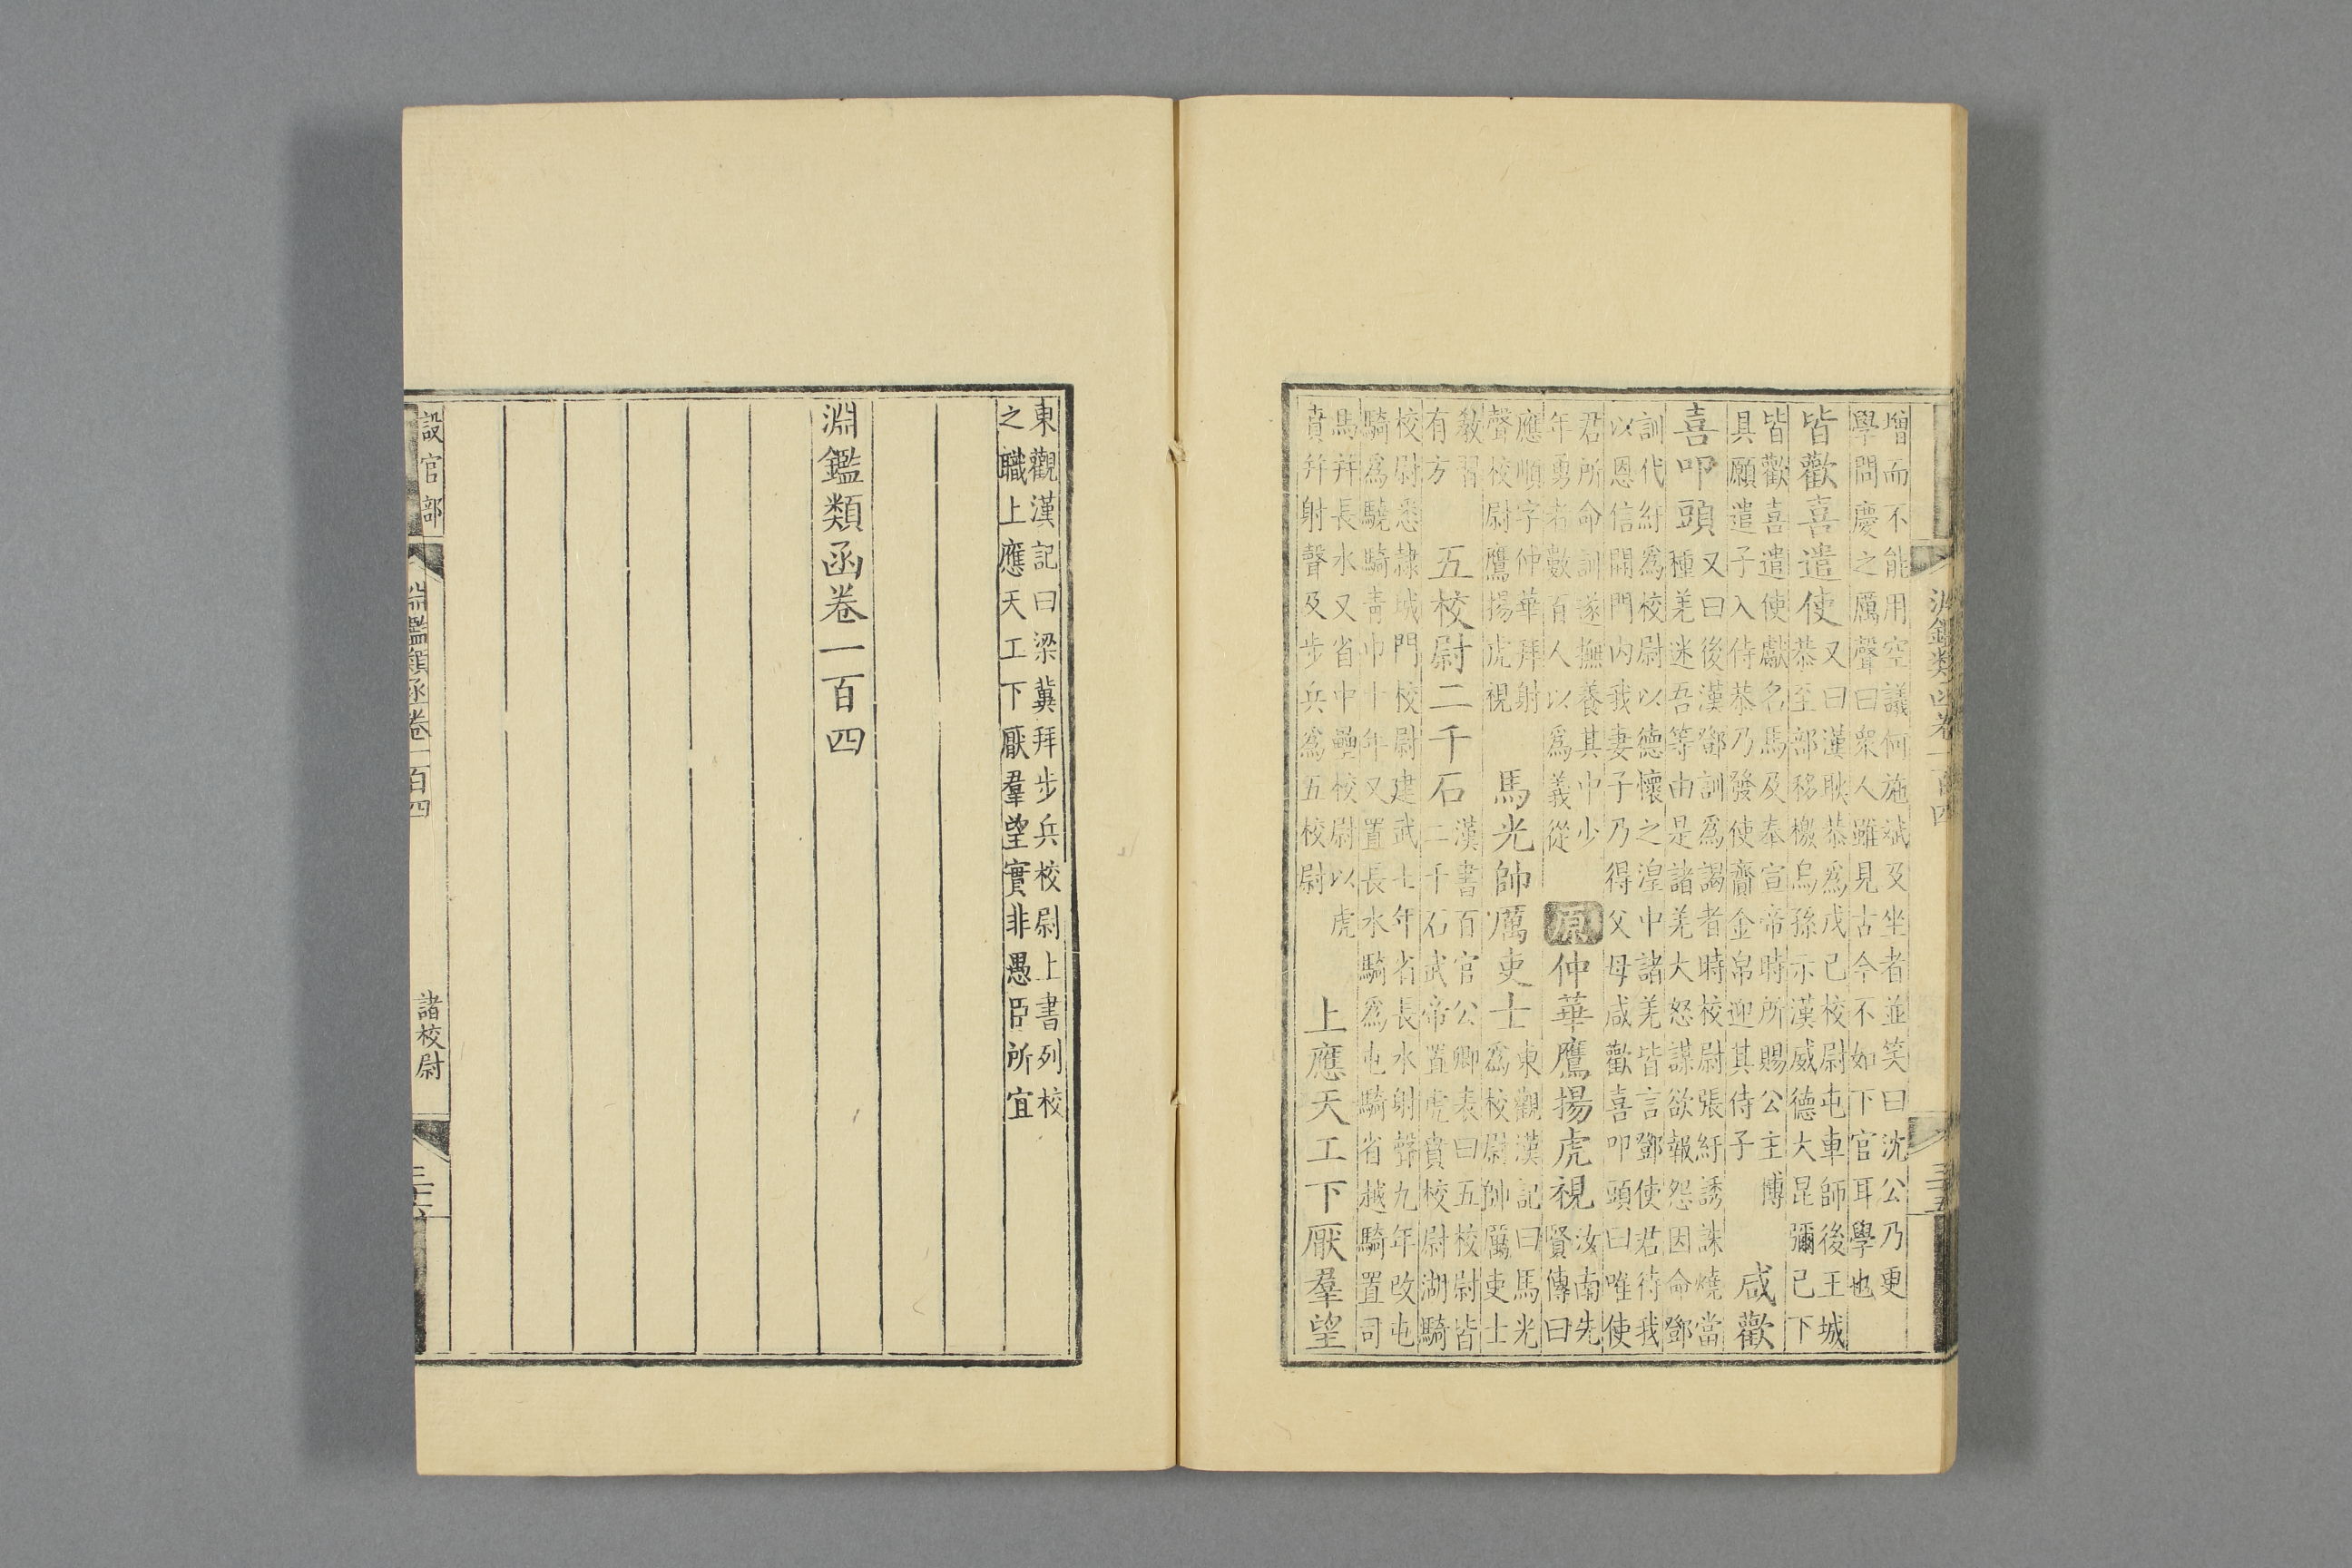 淵鑑類函卷一百四
三十五
增而不能用空議何施斌及坐者並笑曰沈公乃更
學問慶之厲聲曰衆人雖見古今不如下官耳學也
皆歡喜遣使
又曰漢耿恭爲戊己校尉屯車師後王城
恭至部移檄烏孫示漢威德大昆彌已下
皆歡喜遣使獻名馬及奉宣帝時所賜公主博
具願遣子入侍恭乃發使齎金帛迎其侍子
咸歡
喜叩頭
又曰後漢鄧訓爲謁者時校尉張紆誘誅燒當
種羌迷吾等由是諸羌大怒謀欲報怨因命鄧
訓代紆爲校尉以德懷之湟中諸羌皆言鄧使君待我
以恩信開門內我妻子乃得父母咸歡喜叩頭曰唯使
君所命訓遂撫養其中少
年勇者數百人以爲義從
原仲華鷹揚虎視
汝南先
賢傳曰
應順字仲華拜射
聲校尉鷹揚虎視
馬光帥厲吏士
東觀漢記曰馬光
爲校尉帥厲吏士
敎習
有方
五校尉二千石
漢書百官公卿表曰五校尉皆
二千石武帝置虎賁校尉湖騎
校尉悉隸城門校尉建武七年省長水射聲九年改屯
騎爲驍騎靑巾十年又置長水騎爲屯騎省越騎置司
馬幷長水又省中壘校尉以虎
賁幷射聲及步兵爲五校尉
上應天工下厭羣望
東觀漢記曰梁冀拜步兵校尉上書列校
之職上應天工下厭羣望實非愚臣所宜
淵鑑類函卷一百四
設官部
淵鑑類函卷一百四
諸校尉
三十六